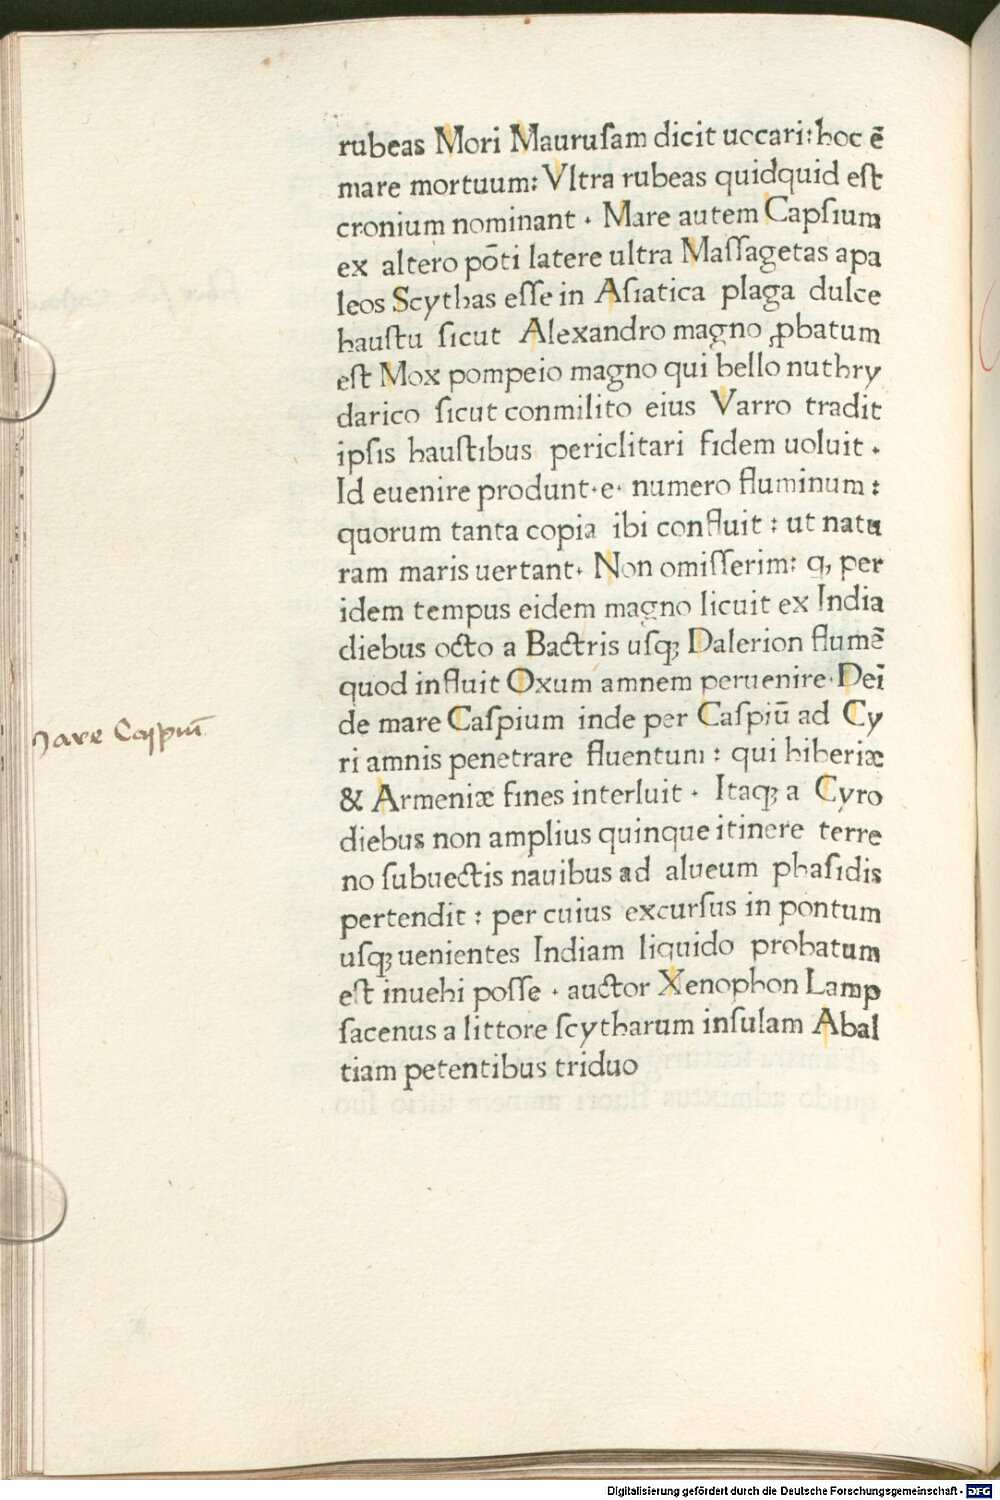 rubeas Mori Maurusam dicit uocari: hoc ē
mare mortuum: Vltra rubeas quidquid est
cronium nominant · Mare autem Capsium
ex altero pōti latere ultra Massagetas apa
leos Scythas esse in Asiatica plaga dulce
haustu sicut Alexandro magno ꝓbatum
est Mox pompeio magno qui bello nuthry
darico sicut conmilito eius Varro tradit
ipsis haustibus periclitari fidem uoluit ·
Id euenire produnt·e· numero fluminum:
quorum tanta copia ibi confluit: ut natu
ram maris uertant· Non omisserim: ꝙ per
idem tempus eidem magno licuit ex India
diebus octo a Bactris usqꝫ Dalerion flumē
quod influit Oxum amnem peruenire· Deī
de mare Caspium inde per Caspiū ad Cy
ri amnis penetrare fluentum: qui hiberiæ
& Armeniæ fines interluit · Itaqꝫ a Cyro
diebus non amplius quinque itinere terre
no subuectis nauibus ad alueum phasidis
pertendit: per cuius excursus in pontum
usqꝫ uenientes Indiam liquido probatum
est inuehi posse · auctor Xenophon Lamp
sacenus a littore scytharum insulam Abal
tiam petentibus triduo
Mare Caspiū
Digitalisierung gefördert durch die Deutsche Forschungsgemeinschaft - DFG